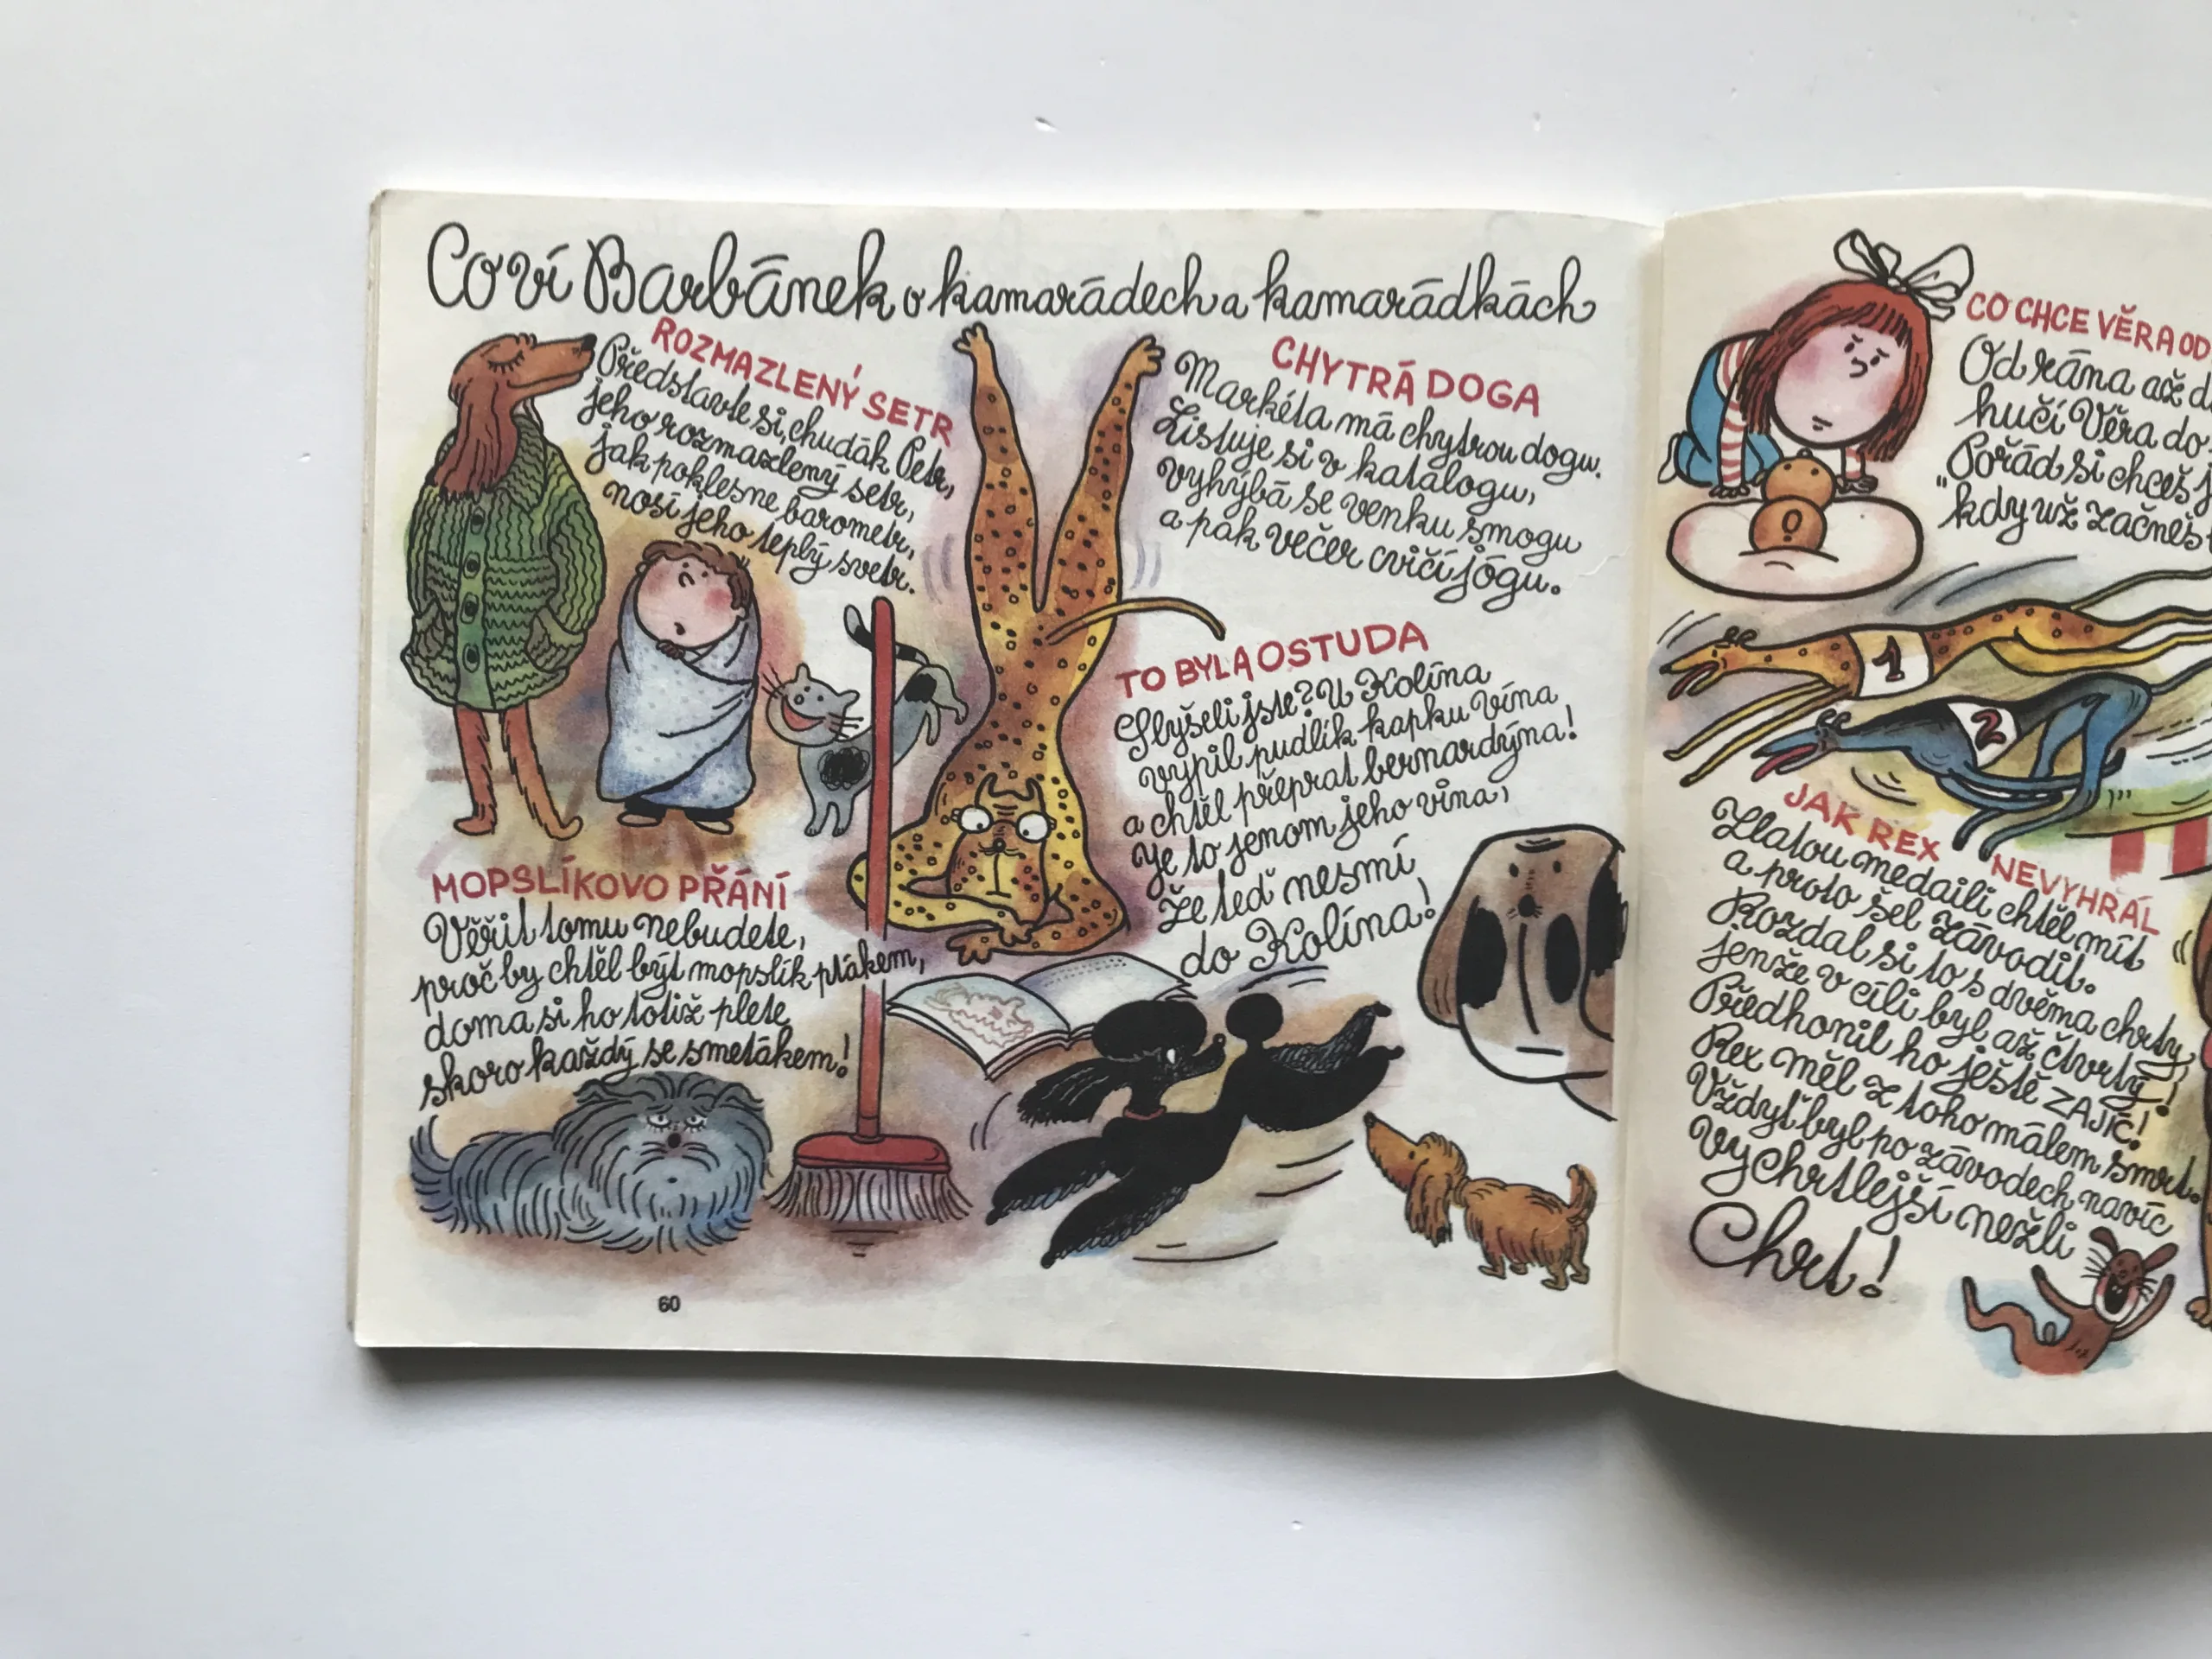 Co ví Barbánek o kamarádech a kamarádkách
ROZMAZLENÝ SETR
Představte si, chudák Petr,
jeho rozmazlený setr,
jak poklesne barometr,
nosí jeho teplý svetr.
CHYTRÁ DOGA
Markéta má chytrou dogu.
Listuje si v katalogu,
vyhýbá se venku smogu
a pak večer cvičí jógu.
TO BYLA OSTUDA
Slyšeli jste? U Kolína
vypil pudlík kapku vína
a chtěl přeprat bernardýna!
Je to jenom jeho vina,
že teď nesmí
do Kolína!
MOPSLÍKOVO PŘÁNÍ
Věřit tomu nebudete,
proč by chtěl být mopslík ptákem,
doma si ho totiž plete
skoro každý se smetákem!
60
CO CHCE VĚRA OD
Od rána až
hučí Věra do
Pořád si chceš
"kdy už začneš
1
2
JAK REX NEVYHRÁL
Zlatou medaili chtěl mít
a proto šel závodit.
Rozdal si to s dvěma chrty,
jenže v cíli byl až čtvrtý!
Předhonil ho ještě ZAJÍC!
Rex měl z toho málem smrt.
Vždyť byl po závodech navíc
vychrtlejší nežli
Chrt!